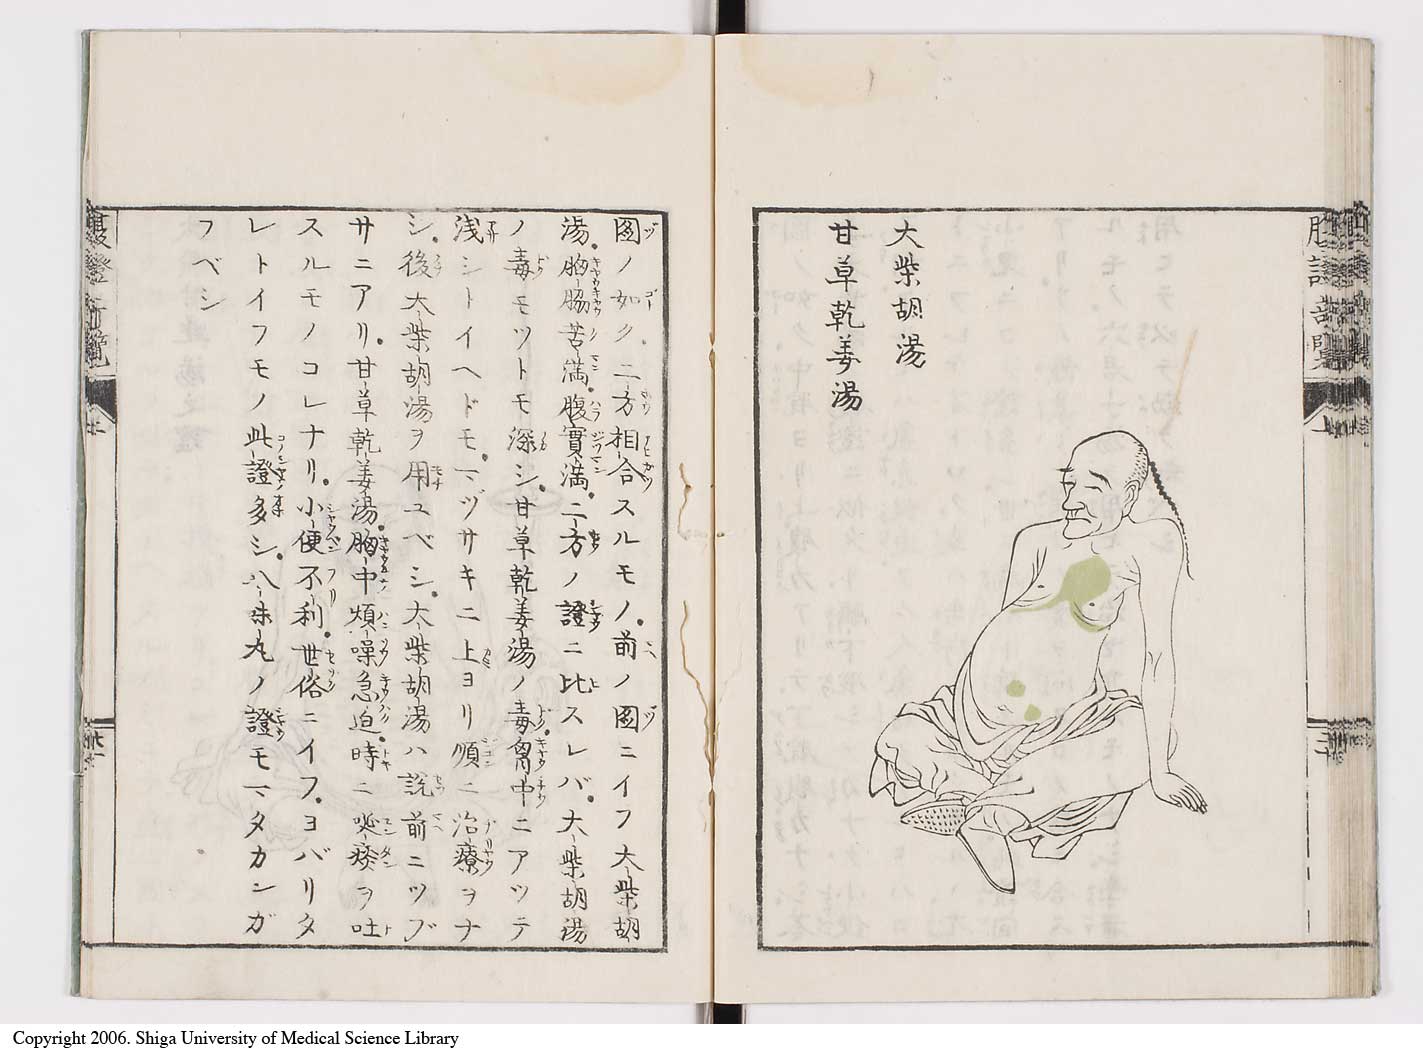 大柴胡湯
甘草乾姜湯
圖ノ如ク二方相合スルモノ前ノ圖ニイフ大柴胡
湯胸脇苦満腹實満二方ノ證ニ比スレバ大柴胡湯
ノ毒モツトモ深シ甘草乾姜湯ノ毒胸中ニアツテ
浅シトイヘドモマヅサキニ上ヨリ順ニ治療ヲナ
シ後大柴胡湯ヲ用ユベシ大柴胡湯ハ説前ニツブ
サニアリ甘草乾姜湯胸中煩噪急迫時ニ咲痰ヲ吐
スルモノコレナリ小便不利世俗ニイフヨバリタ
レトイフモノ此證多シ八味丸ノ證モマタカンガ
フベシ
Copyright 2006. Shiga University of Medical Science Library